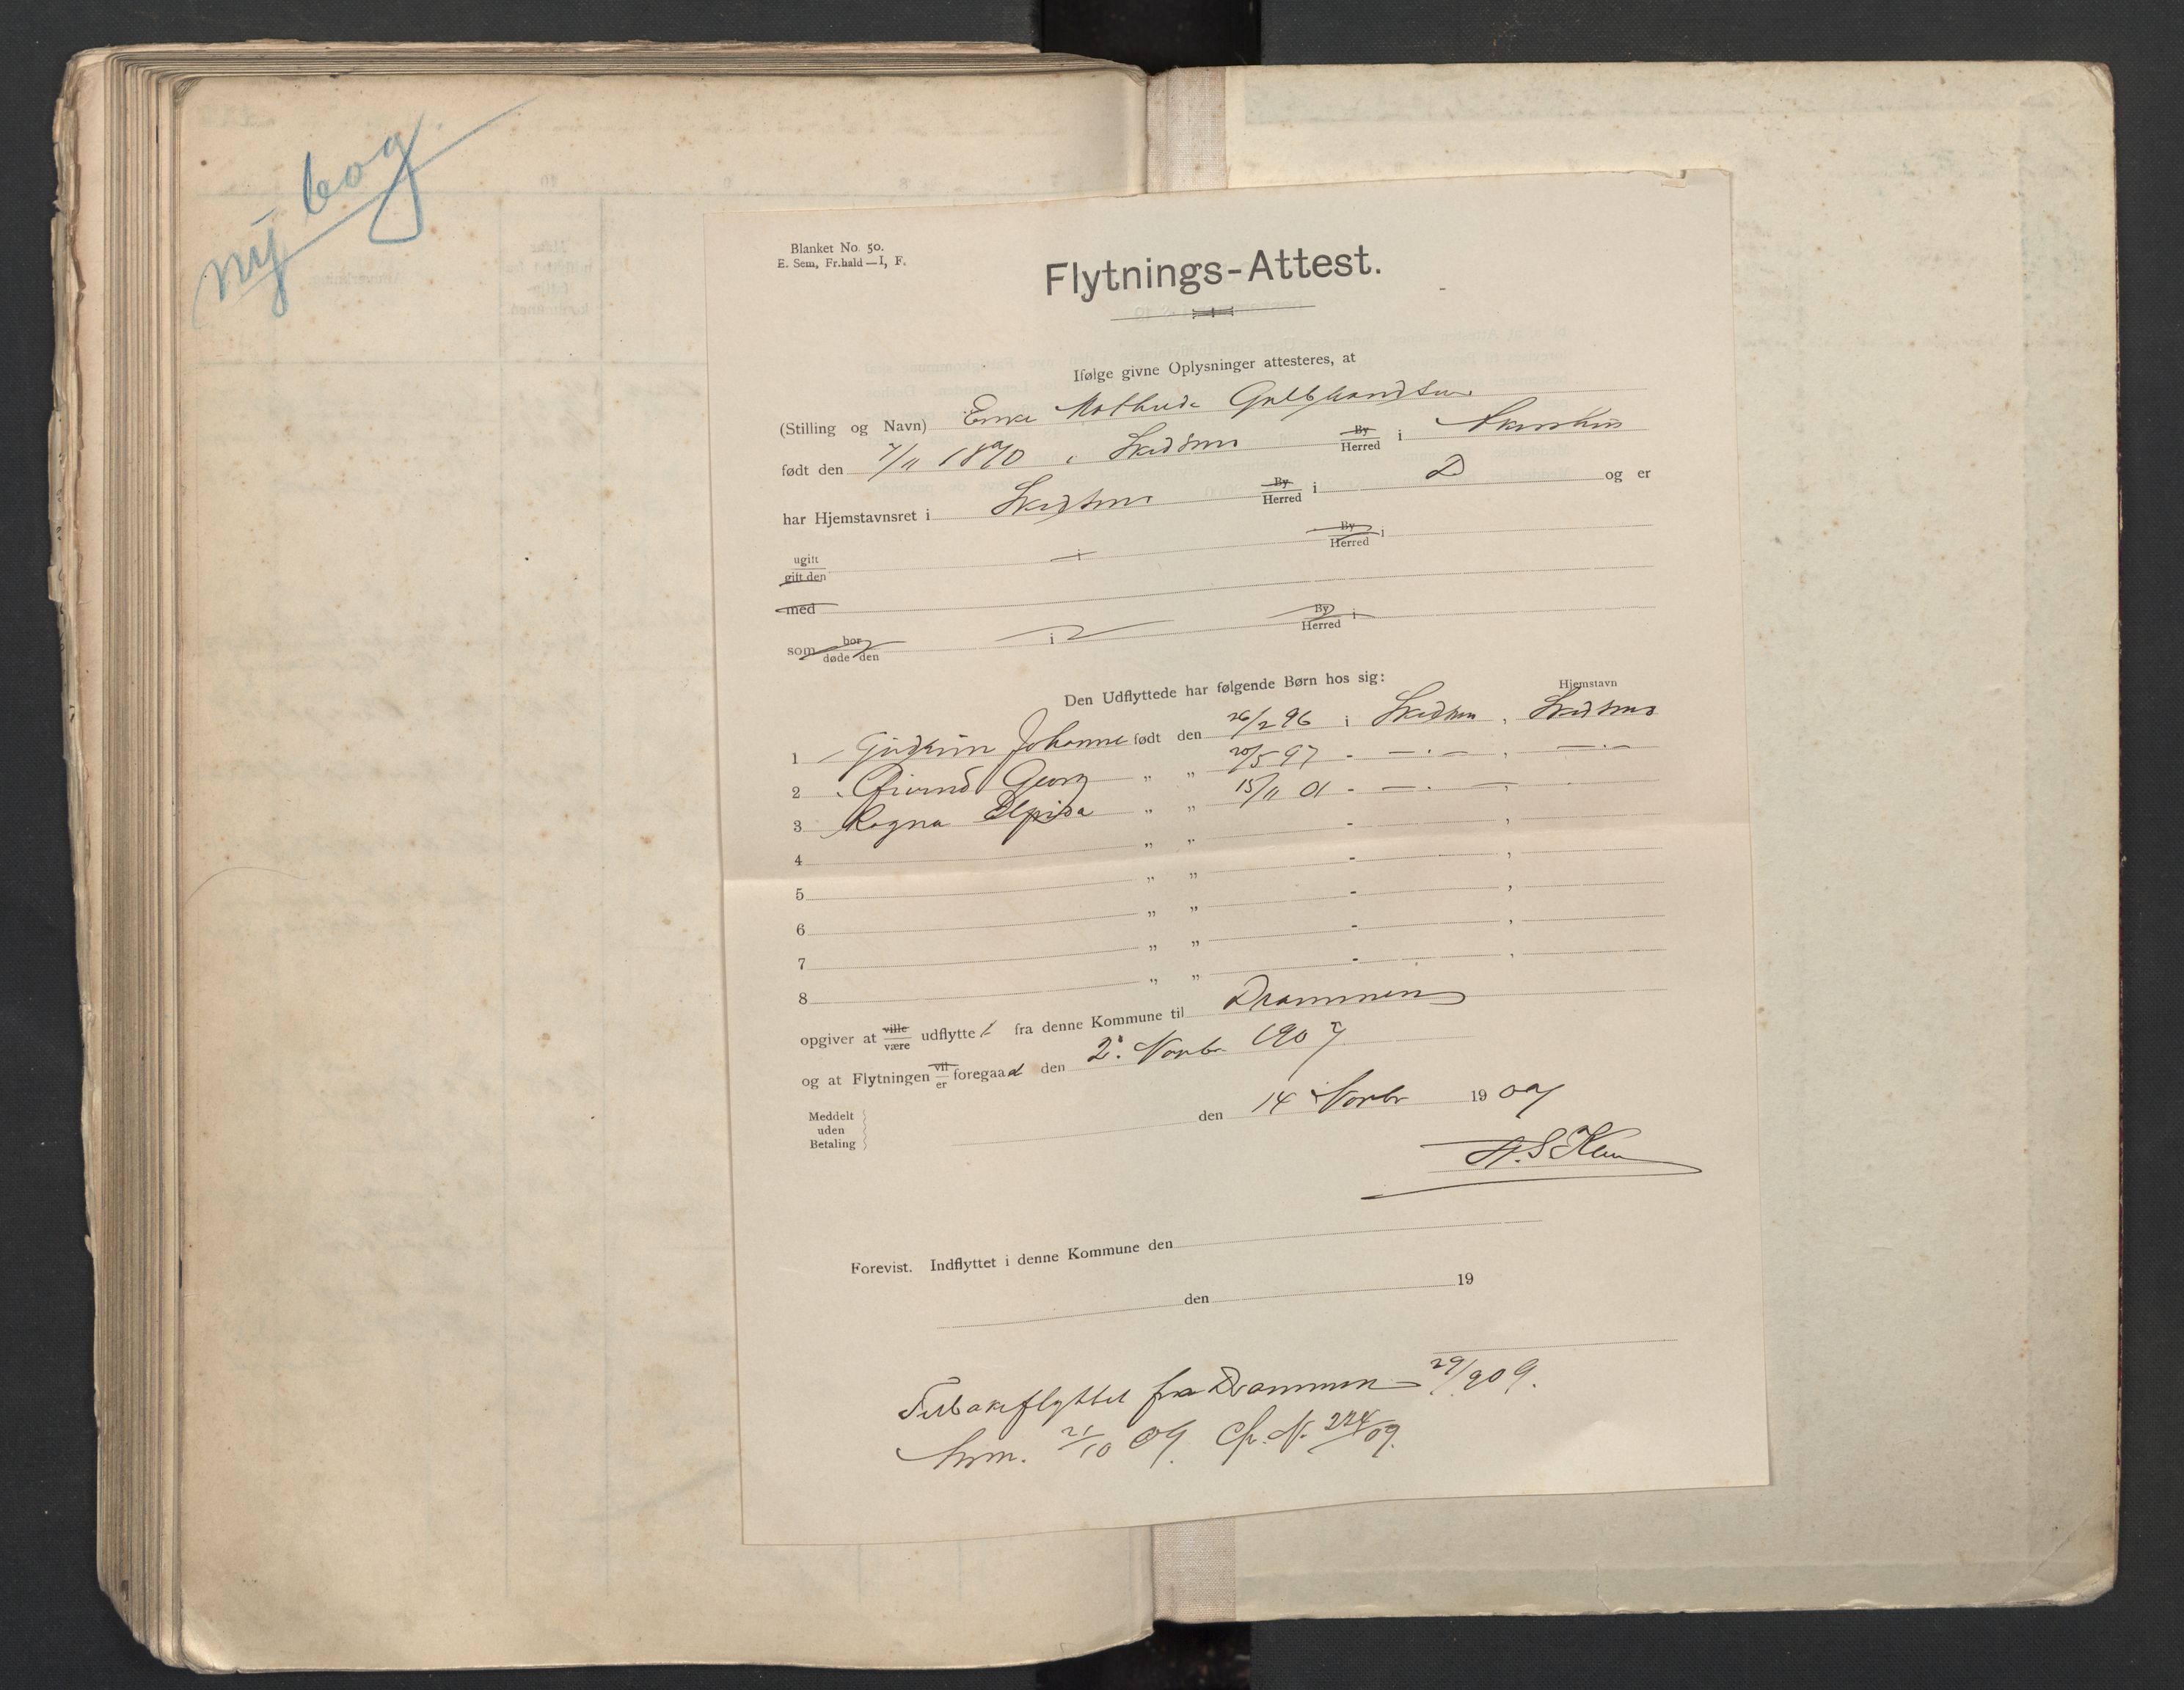 ny bog
Blanket No. 50.
E. Sem, Fr.hald—I, F.
Flytnings-Attest.
Ifølge givne Oplysninger attesteres, at
(Stilling og Navn) Enke Mathilde Gulbrandsen
født den 7/11 1870 i Skedsmo By Herred i Akershus
har Hjemstavnsret i Skedsmo By Herred i D og er
ugift gift den i By Herred i
med
som bor døde den i By Herred i
Den Udflyttede har følgende Børn hos sig: Hjemstavn
1 Gudrun Johanne født den 26/2 96 i Skedsmo, Skedsmo
2 Georg „ „ 20/5 97 - — . — , — . —
3 Ragna „ „ 15/11 01 - — . — ,
4 „ „ - ,
5 „ „ - ,
6 „ „ - ,
7 „ „ - ,
8 „ „ - ,
opgiver at ville være udflyttet fra denne Kommune til Drammen
og at Flytningen vil er foregaad den 2. Novbr 1907
Meddelt
uden
Betaling
den 14 Novbr 1907
Forevist. Indflyttet i denne Kommune den
den 19
Tilbakeflyttet fra Drammen 29/9 09.
21/10 09. 224/09.